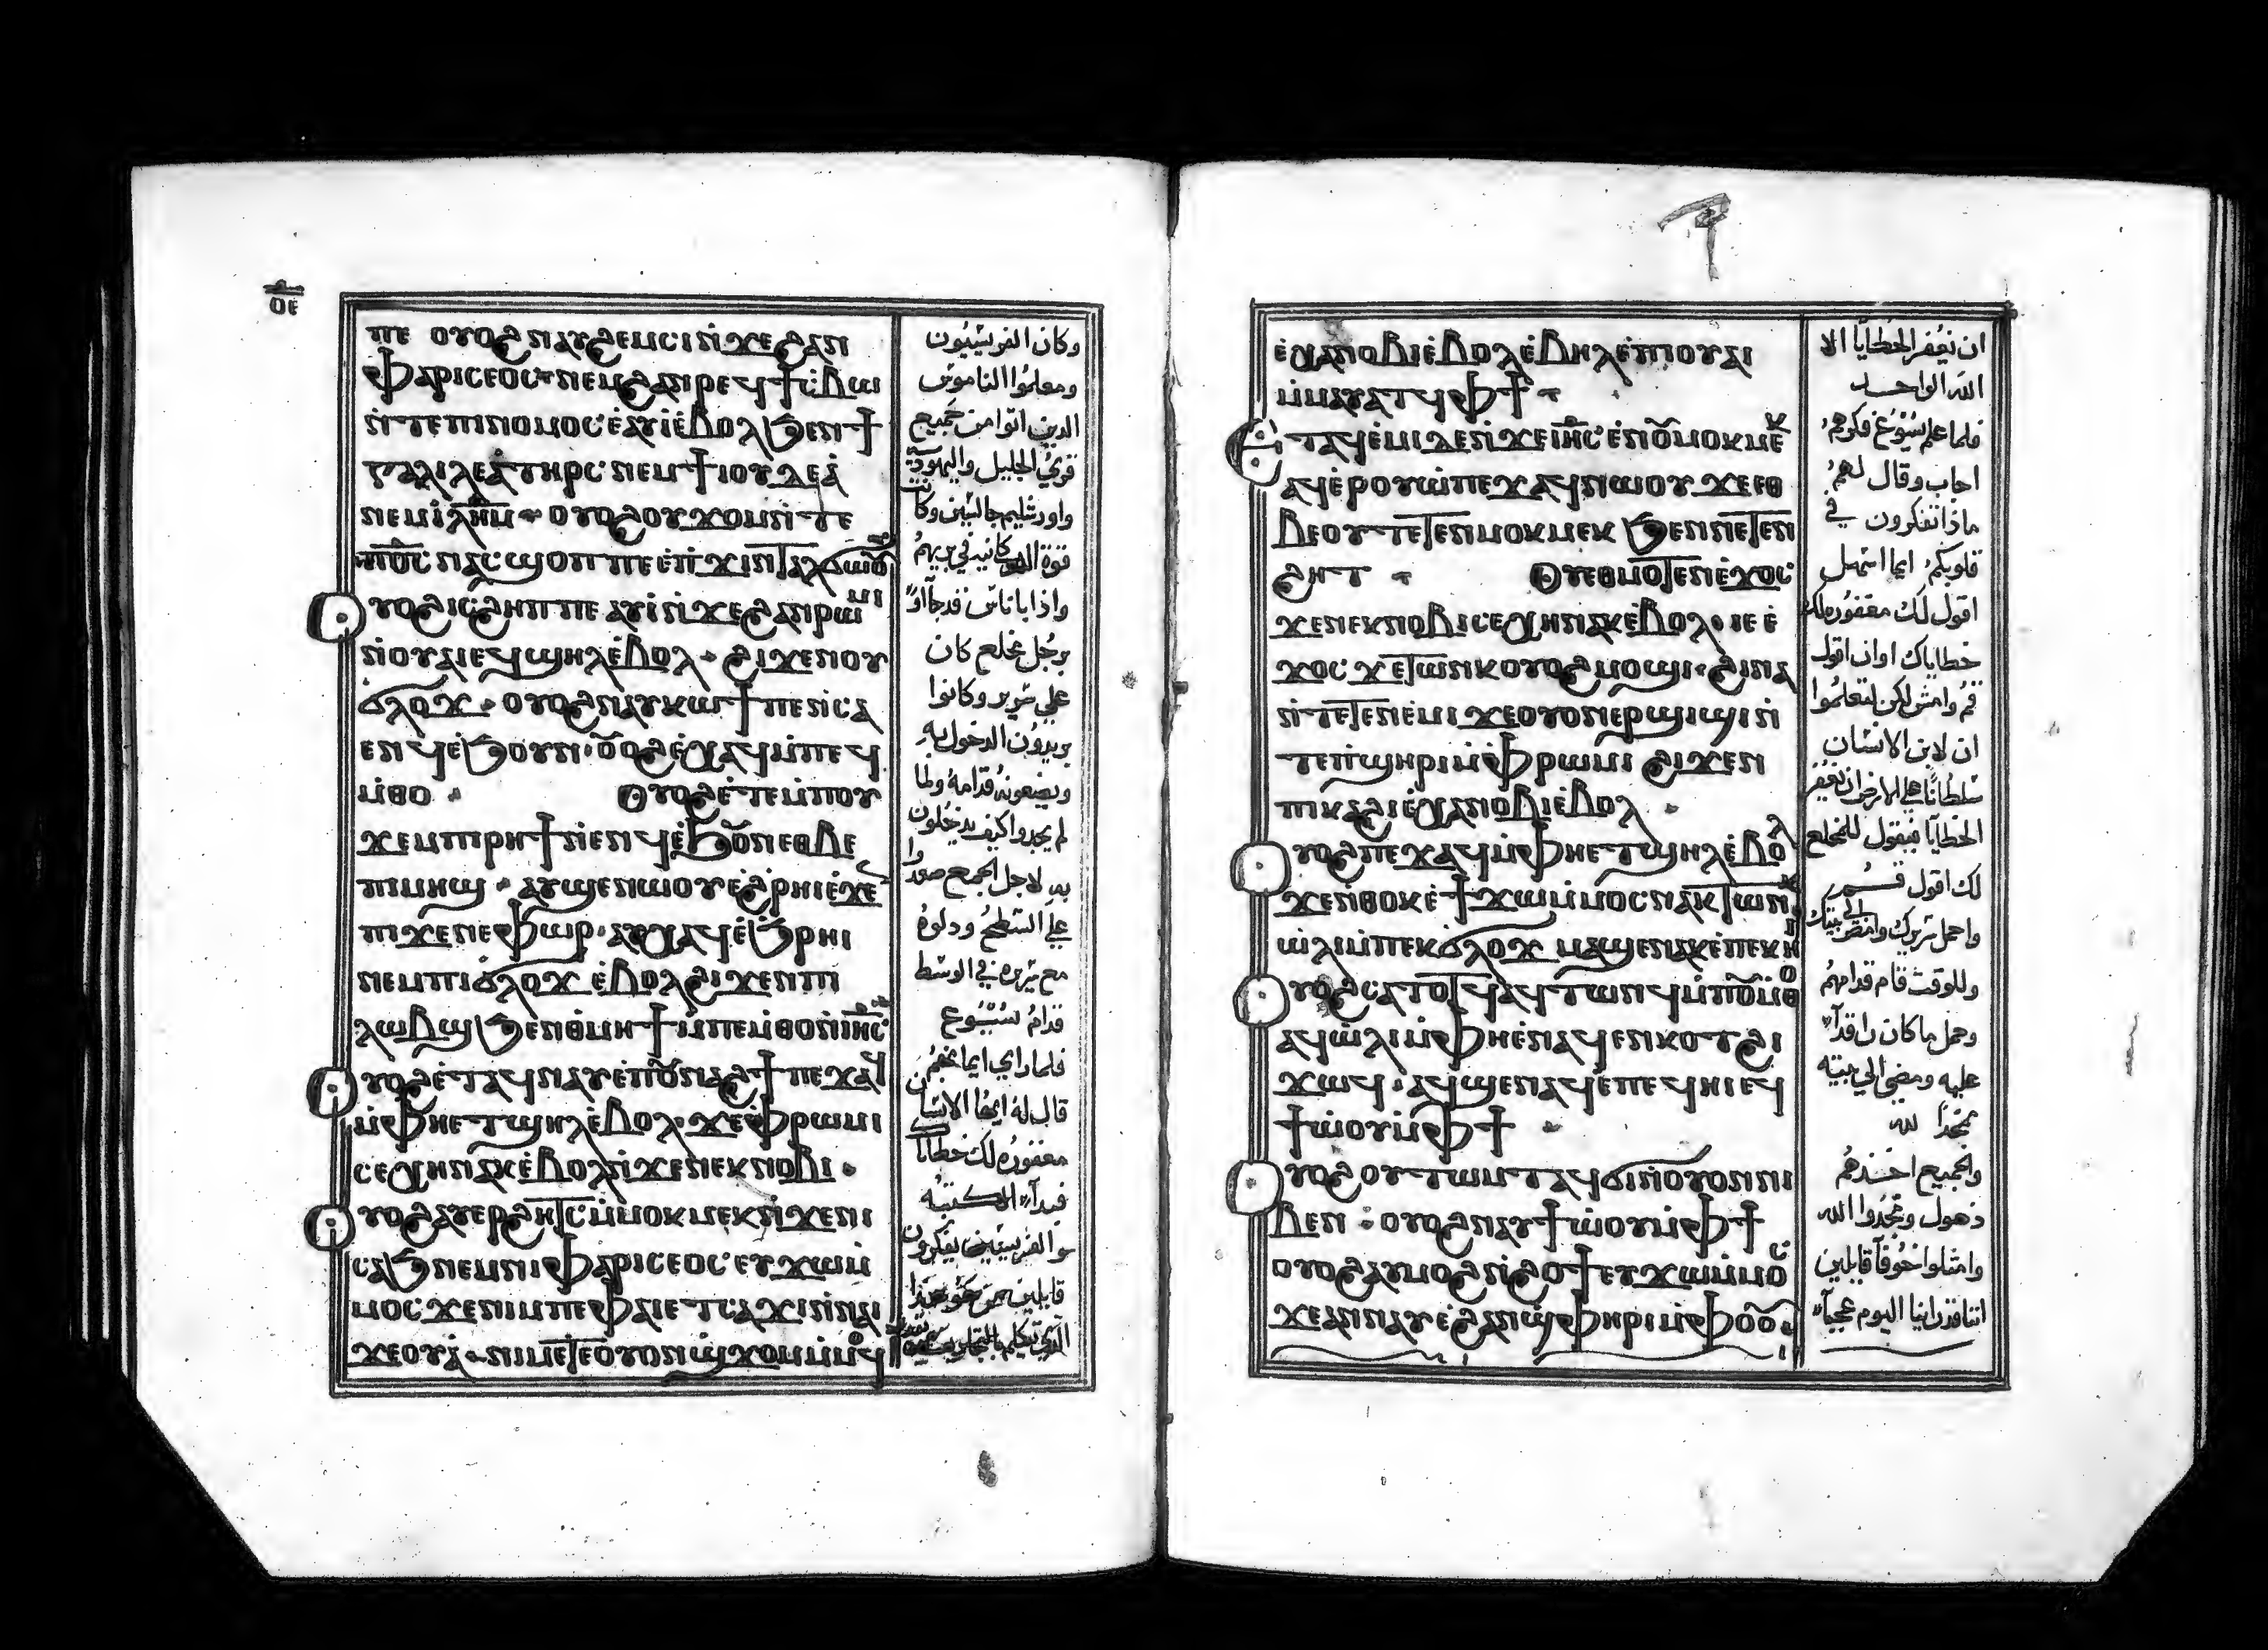 ⲟⲉ
ⲡⲉ ⲟⲩⲟϩ ⲛⲁⲩϩⲉⲙⲥⲓ ⲛ̀ϫⲉϩⲁⲛ
ⲫⲁⲣⲓⲥⲉⲟⲥ ⲛⲉⲙϩⲁⲛⲣⲉϥϯⲥ̀ⲃⲱ
ⲛ̀ⲧⲉⲡⲓⲛⲟⲙⲟⲥ ⲉ̀ⲁⲩⲓ̀ⲉ̀ⲃⲟⲗϧⲉⲛϯ
ⲅⲁⲗⲓⲗⲉⲁ̀ ⲧⲏⲣⲥ ⲛⲉⲙϯⲓⲟⲩⲇⲉⲁ̀
ⲛⲉⲙⲓⲗ̅ⲏ̅ⲙ̅ ⲟⲩⲟϩ ⲟⲩϫⲟⲙ ⲛ̀ⲧⲉ
ⲡ̅ⲟ̅ⲥ̅ ⲛⲁⲥϣⲟⲡ ⲡⲉ ⲉⲡ̀ϫⲓⲛⲧⲁⲗϭⲱⲟⲩ
ⲟⲩⲟϩ ⲓⲥϩⲏⲡⲡⲉ ⲁⲩⲓ̀ ⲛ̀ϫⲉϩⲁⲛⲣⲱⲙⲓ
ⲛ̀ⲟⲩⲁⲓ ⲉϥϣⲏⲗ ⲉ̀ⲃⲟⲗ ϩⲓϫⲉⲛⲟⲩ
ϭⲗⲟϫ ⲟⲩⲟϩ ⲛⲁⲩⲕⲱϯ ⲡⲉ ⲛ̀ⲥⲁ
ⲉⲛϥ ⲉ̀ϧⲟⲩⲛ ⲟⲩⲟϩ ⲉ̀ⲭⲁϥ ⲙ̀ⲡⲉϥ
ⲙ̀ⲑⲟ ⲟⲩⲟϩ ⲉ̀ⲧⲉⲙ̀ⲡⲟⲩ
ϫⲉⲙⲡⲣⲏϯ ⲛ̀ⲉⲛϥ ⲉ̀ϧⲟⲩⲛ ⲉⲑⲃⲉ
ⲡⲓⲙⲏϣ ⲁⲩϣⲉⲛⲱⲟⲩ ⲉ̀ϩⲣⲏⲓ ⲉ̀ϫⲉ
ⲡⲓϫⲉⲛⲉⲫⲱⲣ ⲁⲩⲭⲁϥ ⲉ̀ϧⲣⲏⲓ
ⲛⲉⲙⲡⲓϭⲗⲟϫ ⲉ̀ⲃⲟⲗϩⲓϫⲉⲛⲡⲓ
ⲗⲱⲃϣ ϧⲉⲛⲑⲙⲏϯ ⲙ̀ⲡⲉⲙ̀ⲑⲟ ⲛ̀ⲓⲏ̅ⲥ̅
ⲟⲩⲟϩ ⲉ̀ⲧⲁϥⲛⲁⲩ ⲉ̀ⲡⲟⲩⲛⲁϩϯ ⲡⲉϫⲁϥ
ⲙ̀ⲫⲏⲉⲧϣⲏⲗ ⲉ̀ⲃⲟⲗ ϫⲉ ⲫⲣⲱⲙⲓ
ⲥⲉⲭⲏ ⲛⲁⲕ ⲉ̀ⲃⲟⲗ ⲛ̀ϫⲉⲛⲉⲕⲛⲟⲃⲓ
ⲟⲩⲟϩ ⲁⲩⲉⲣϩⲏⲧⲥ ⲙ̀ⲙⲟⲕⲙⲉⲕ ⲛ̀ϫⲉⲛⲓ
ⲥⲁϧ ⲛⲉⲙⲛⲓⲫⲁⲣⲓⲥⲉⲟⲥ ⲉⲩϫⲱⲙ̀
ⲙⲟⲥ ϫⲉⲛⲓⲙ ⲡⲉ ⲫⲁⲓ ⲉⲧⲥⲁϫⲓ ⲛ̀ⲛⲁⲓ
ϫⲉⲟⲩⲁ̀ ⲛⲓⲙ ⲡⲉⲧⲉ ⲟⲩⲟⲛϣϫⲟⲙ ⲙ̀ⲙⲟϥ
وكان الفريسيون
ومعلموا الناموس
الذين اتوا من جميع
قري الجليل واليهودية
واورشليم جالسين وكانت
قوة الله كانيه في بريهم
واذا باناس قد جآاوا
برجل مخلع كان
علي سرير وكانوا
يريدون الدخول به
ويضعونه قدامه ولما
لم يجدوا كيف يدخلون
به لاجل الجمع صعدوا
علي السطح ودلوه
مع سريره في الوسط
قدام يسوع
فلما راي ايمانهم
قال له ايها الانسان
مغفوره لك خطاياك
فبدآء الكتبه
والفريسيين يفكرون
قايلين من هو هذا
الذي يتكلم بالتجاديف
ⲉ̀ⲭⲁⲛⲟⲃⲓ ⲉ̀ⲃⲟⲗ ⲉ̀ⲃⲏⲗ ⲉ̀ⲡⲓⲟⲩⲁⲓ
ⲙ̀ⲙⲁⲩⲁⲧϥ ⲫϯ
ⲉ̀ⲧⲁϥⲉ̀ⲙⲓ ⲇⲉ ⲛ̀ϫⲉⲓⲏ̅ⲥ̅ ⲉ̀ⲛⲟⲩⲙⲟⲕⲙⲉⲕ
ⲁϥⲉ̀ⲣⲟⲩⲱ̀ ⲡⲉϫⲁϥ ⲛⲱⲟⲩ ϫⲉ ⲉⲑ
ⲃⲉⲟⲩ ⲧⲉⲧⲉⲛⲙⲟⲕⲙⲉⲕ ϧⲉⲛⲛⲉⲧⲉⲛ
ϩⲏⲧ ⲟⲩ ⲉⲑⲙⲟⲧⲉⲛ ⲉ̀ϫⲟⲥ
ϫⲉⲛⲉⲕⲛⲟⲃⲓ ⲥⲉⲭⲏ ⲛⲁⲕ ⲉ̀ⲃⲟⲗ ⲓⲉ ⲉ̀
ϫⲟⲥ ϫⲉⲧⲱⲛⲕ ⲟⲩⲟϩ ⲙⲟϣⲓ ϩⲓⲛⲁ
ⲛ̀ⲧⲉⲧⲉⲛⲉ̀ⲙⲓ ϫⲉⲟⲩⲟⲛⲉⲣϣⲓϣⲓ ⲛ̀
ⲧⲉⲡ̀ϣⲏⲣⲓ ⲙ̀ⲫⲣⲱⲙⲓ ϩⲓϫⲉⲛ
ⲡⲓⲕⲁϩⲓ ⲉ̀ⲭⲁⲛⲟⲃⲓ ⲉ̀ⲃⲟⲗ
ⲟⲩⲟϩ ⲡⲉϫⲁϥ ⲙ̀ⲫⲏⲉⲧϣⲏⲗ ⲉ̀ⲃⲟⲗ
ϫⲉⲛ̀ⲑⲟⲕ ⲉ̀ϯϫⲱ ⲙ̀ⲙⲟⲥ ⲛⲁⲕ ⲧⲱⲛⲕ
ⲱ̀ⲗⲓ ⲙ̀ⲡⲉⲕϭⲗⲟϫ ⲙⲁϣⲉⲛⲁⲕ ⲉ̀ⲡⲉⲕⲏⲓ
ⲟⲩⲟϩ ⲥⲁⲧⲟⲧϥ ⲁϥⲧⲱⲛϥ ⲙ̀ⲡⲟⲩⲙ̀ⲑⲟ
ⲁϥⲱ̀ⲗⲓ ⲙ̀ⲫⲏ ⲉ̀ⲛⲁϥⲉⲛⲕⲟⲧ ϩⲓ
ϫⲱϥ ⲁϥϣⲉⲛⲁϥ ⲉ̀ⲡⲉϥⲏⲓ ⲉϥ
ϯⲱ̀ⲟⲩ ⲙ̀ⲫϯ
ⲟⲩⲟϩ ⲟⲩⲧⲱⲙⲧ ⲁϥϭⲓ ⲛ̀ⲟⲩⲟⲛ ⲛⲓ
ⲃⲉⲛ ⲟⲩⲟϩ ⲛⲁⲩϯⲱ̀ⲟⲩ ⲙ̀ⲫϯ
ⲟⲩⲟϩ ⲁⲩⲙⲟϩ ⲛ̀ϩⲟϯ ⲉⲩϫⲱ ⲙ̀ⲙⲟⲥ
ϫⲉⲁⲛⲛⲁⲩ ⲉ̀ϩⲁⲛϣⲫⲏⲣⲓ ⲙ̀ⲫⲟⲟⲩ
ان تغفر الخطايا الا
الله الواحد
فلما علم يسوع فكرهم
اجاب وقال لهم
ماذا تفكرون في
قلوبكم ايما اسهل
اقول لك مغفوره لك
خطاياك او ان اقول
قم وامش لكن لتعلموا
ان لابن الانسان
سلطانًا علي الارض ان يغفر
الخطايا فيقول للمخلع
لك اقول قم
واحمل سريرك وامض الي بيتك
وللوقت قام قدامهم
وحمل ما كان راقدآء
عليه ومضي الي بيته
مجدًا لله
والجميع اخذهم
ذهول ومجدوا الله
وامتلوا خوفآ قايلين
اننا قد راينا اليوم عجبآء